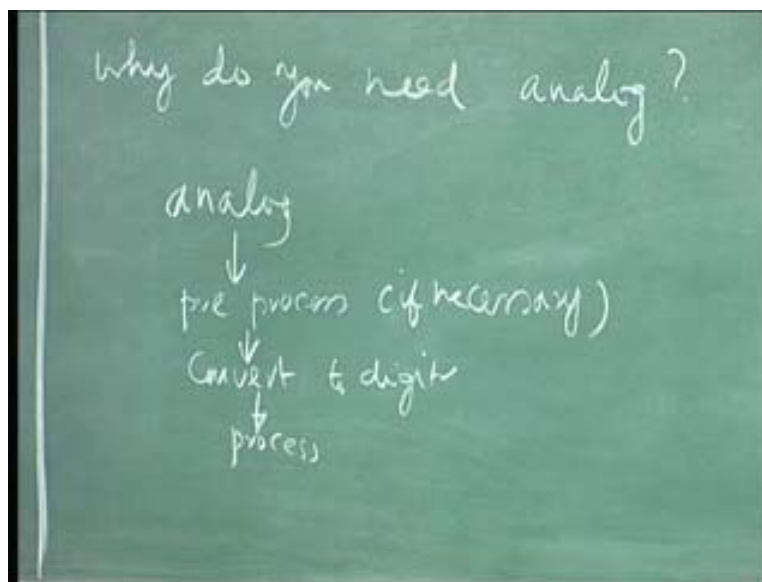 Why do you need analog?
analog
pre process (if necessary)
Convert to digital
process